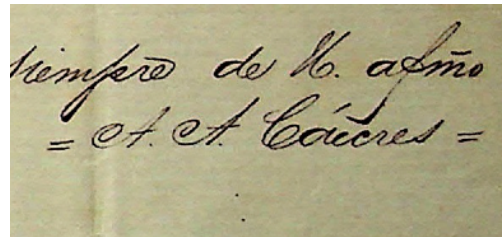 siempre de U. afmo
= A. A. Cáceres =